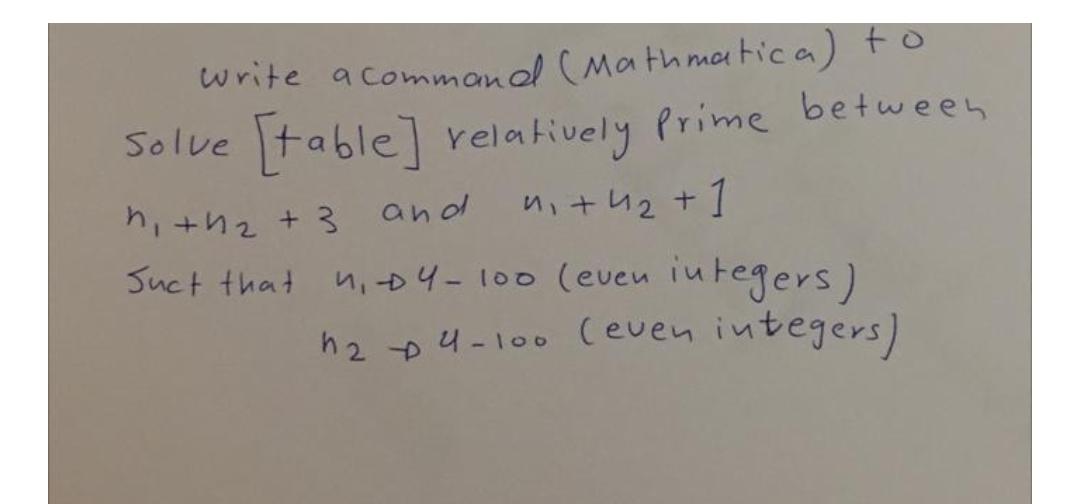 write a command (Mathmatica) to
Solve [table] relatively Prime between
n₁ + n₂ + 3 and n₁ + n₂ + 1
Suct that n₁ → 4 - 100 (even integers)
n₂ → 4 - 100 (even integers)